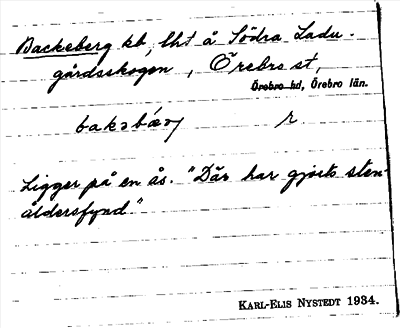 Backeberg kb, lht å Södra Ladu-
gårdsskogen, Örebro st,
Örebro hd, Örebro län.
bakabǽrj r
Ligger på en ås. "Där har gjorts sten-
åldersfynd."
KARL-ELIS NYSTEDT 1934.